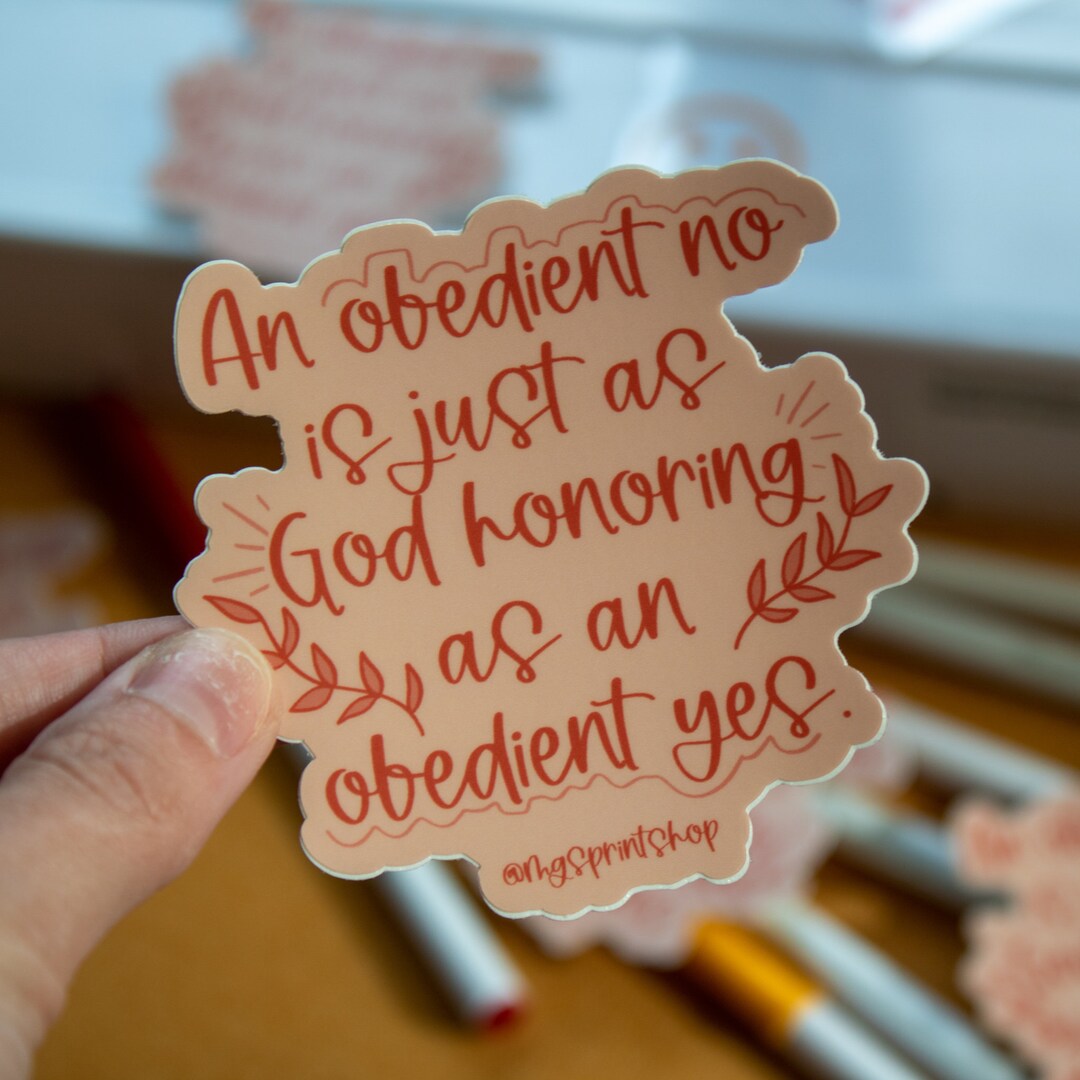 An obedient no
is just as
God honoring
as an
obedient yes.
@mgsprintshop